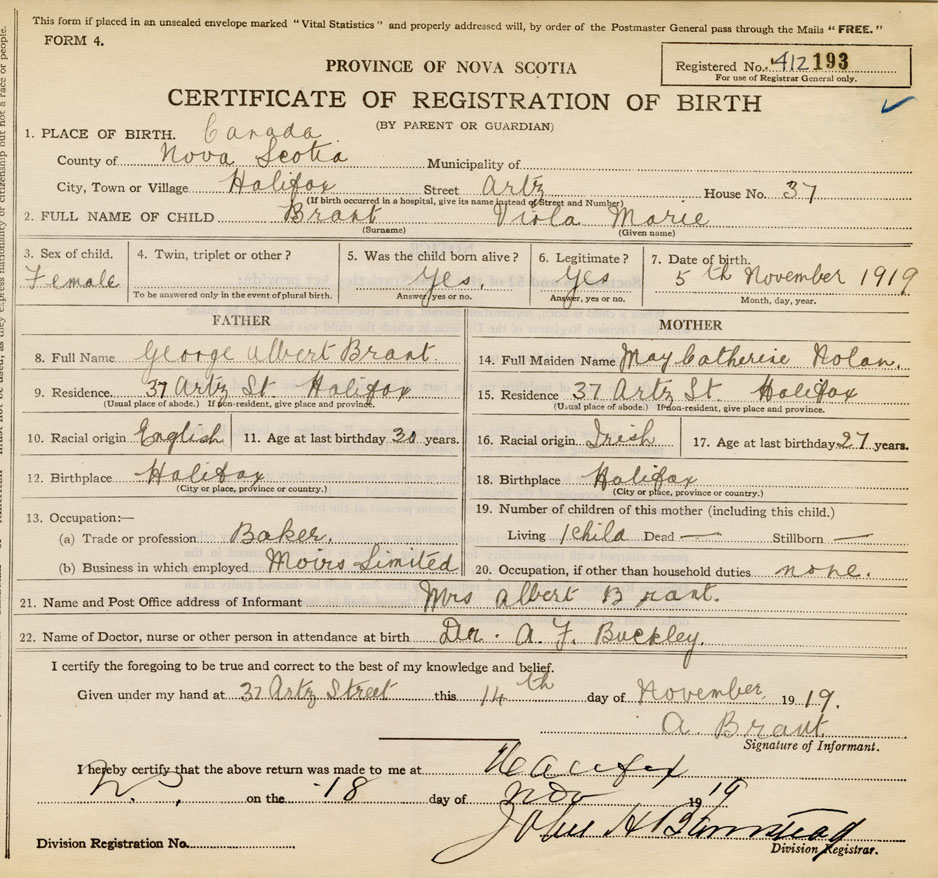 This form if placed in an unsealed envelope marked "Vital Statistics" and properly addressed will, by order of the Postmaster General pass through the Mails "FREE."
FORM 4.
Registered No. 412193
For use of Registrar General only.
PROVINCE OF NOVA SCOTIA
CERTIFICATE OF REGISTRATION OF BIRTH
(BY PARENT OR GUARDIAN)
1. PLACE OF BIRTH. Canada
County of Nova Scotia Municipality of
City, Town or Village Halifax Street Artz House No. 37
(If birth occurred in a hospital, give its name instead of Street and Number)
2. FULL NAME OF CHILD Brant Viola Marie
(Surname) (Given name)
3. Sex of child. 4. Twin, triplet or other? 5. Was the child born alive? 6. Legitimate? 7. Date of birth.
Female Yes. Yes 5th November 1919
To be answered only in the event of plural birth. Answer, yes or no. Answer, yes or no. Month, day, year.
FATHER
8. Full Name George Albert Brant.
9. Residence. 37 Artz St. Halifax
(Usual place of abode.) If non-resident, give place and province.
10. Racial origin English 11. Age at last birthday 30 years.
12. Birthplace Halifax
(City or place, province or country.)
13. Occupation:—
(a) Trade or profession Baker.
(b) Business in which employed Moirs Limited
MOTHER
14. Full Maiden Name May Catherine Nolan.
15. Residence 37 Artz St. Halifax
(Usual place of abode.) If non-resident, give place and province.
16. Racial origin Irish 17. Age at last birthday 27 years.
18. Birthplace Halifax
(City or place, province or country.)
19. Number of children of this mother (including this child.)
Living 1 child Dead — Stillborn —
20. Occupation, if other than household duties none.
21. Name and Post Office address of Informant Mrs Albert Brant.
22. Name of Doctor, nurse or other person in attendance at birth Dr. A. F. Buckley.
I certify the foregoing to be true and correct to the best of my knowledge and belief.
Given under my hand at 37 Artz Street this 14th day of November 1919.
A. Brant
Signature of Informant.
I hereby certify that the above return was made to me at Halifax
N.S., on the 18 day of Nov 1919
John H Barnstead
Division Registrar.
Division Registration No.